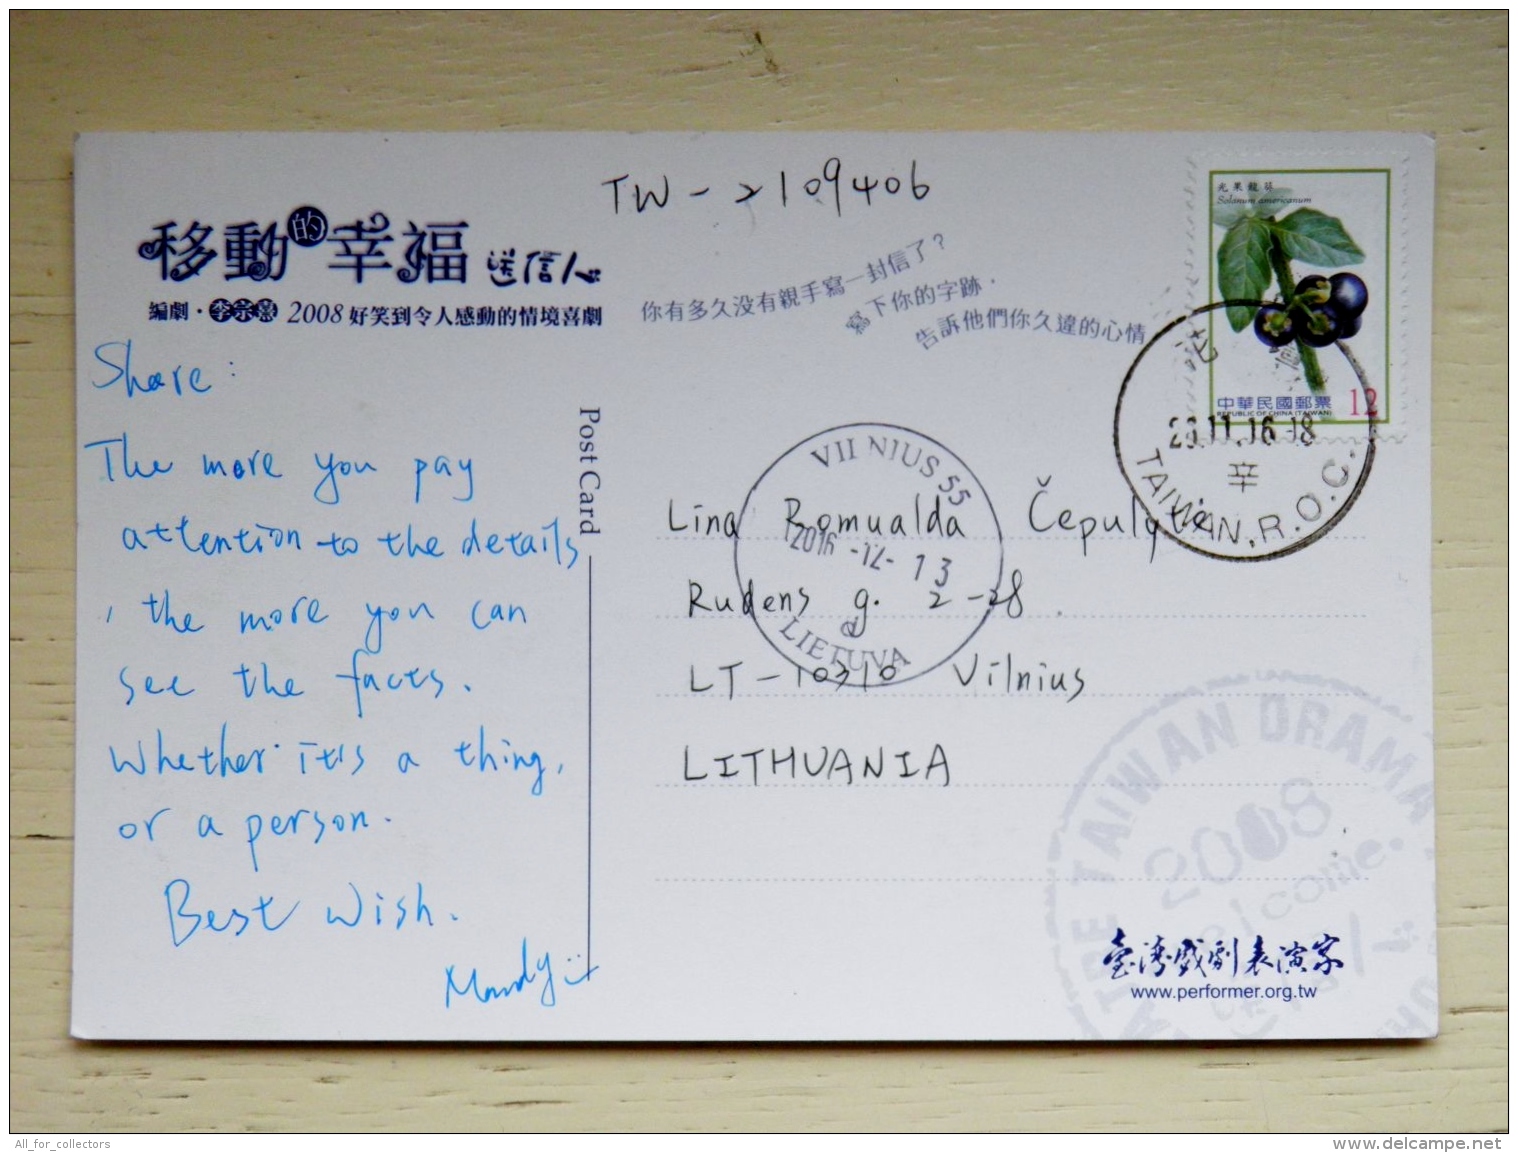 TW-2109406
移動的幸福 送信人
編劇·李宗熹 2008好笑到令人感動的情境喜劇
你有多久没有親手寫一封信了?
寫下你的字跡.
告訴他們你久違的心情
光果龍葵
Solanum americanum
中華民國郵票 12
REPUBLIC OF CHINA (TAIWAN)
11.16.18
辛
TAIWAN, R.O.C.
Share:
The more you pay
attention to the details
, the more you can
see the facts.
Whether it's a thing,
or a person.
Best Wish.
Mandy
Post Card
VILNIUS 55
2016-12-13
LIETUVA
d
Lina Romualda Čepulytė
Rudens g. 2-28
LT-10310 Vilnius
LITHUANIA
TAIWAN DRAMA
2008
臺灣戲劇表演家
www.performer.org.tw
All_for_collectors
www.delcampe.net